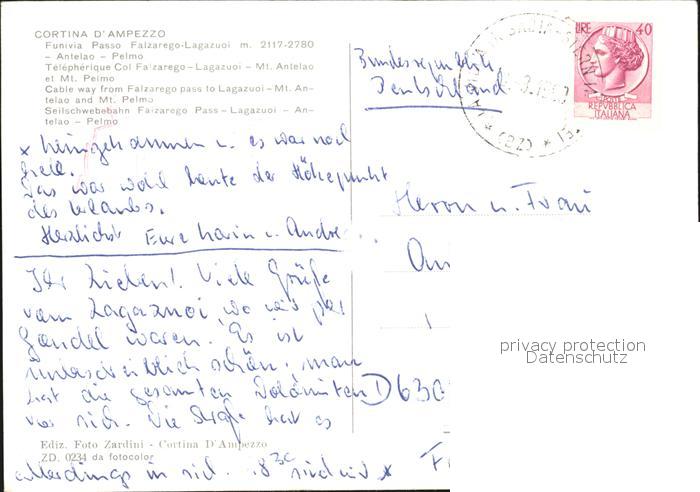 CORTINA D'AMPEZZO
Funivia Passo Falzarego-Lagazuoi m. 2117-2780
– Antelao – Pelmo
Téléphérique Col Falzarego-Lagazuoi - Mt. Antelao
et Mt. Pelmo
Cable way from Falzarego pass to Lagazuoi – Mt. An-
telao and Mt. Pelmo
Seilschwebebahn Falzarego Pass – Lagazuoi – An-
telao – Pelmo
x heimgekommen u. es war noch
hell.
Das war wohl heute der Höhepunkt
des Urlaubs.
Herzlichst Eure u. André
Ihr Lieben! Viele Grüße
vom Lagazuoi, wo wir per
Gondel waren. Es ist
unbeschreiblich schön, man
hat die gesamten Dolomiten
vor sich. Die Straße hat es
allerdings in sich. 18 30 sind wir x
Ediz. Foto Zardini - Cortina D'Ampezzo
ZD. 0234 da fotocolor
Bundesrepublik
Deutschland
LIRE 40
POSTE
REPVBBLICA
ITALIANA
(BZ)
Herrn u. Frau
D 630
privacy protection
Datenschutz